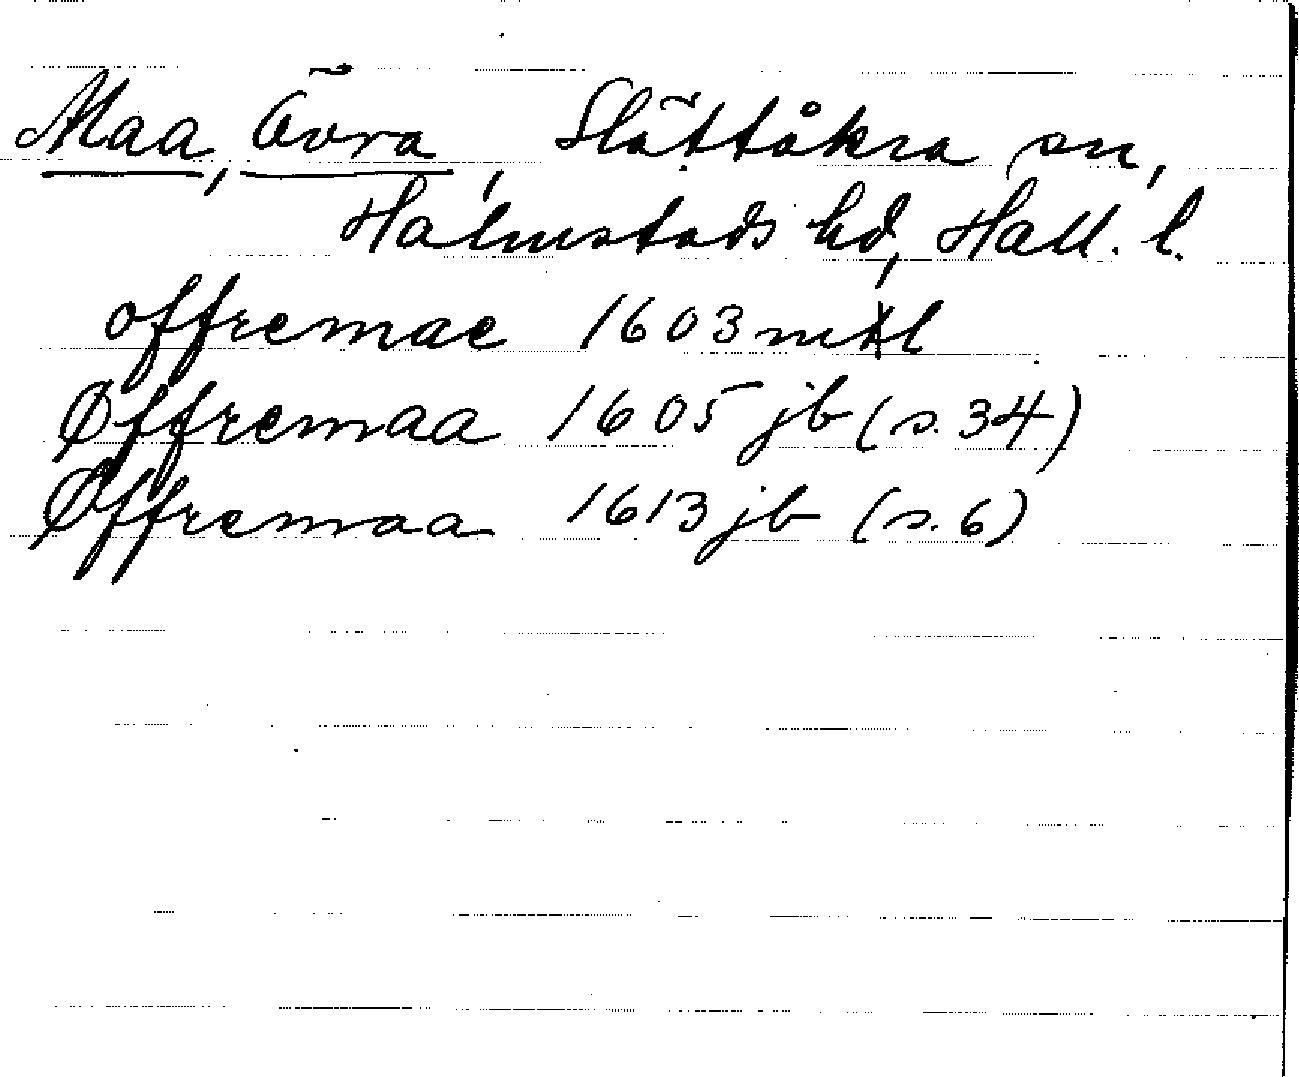 Maa, Övra, Slättåkra sn,
Halmstads hd, Hall. l.
offremae 1603 mtl
Øffremaa 1605 jb (s. 34)
Øffremaa 1613 jb (s. 6)